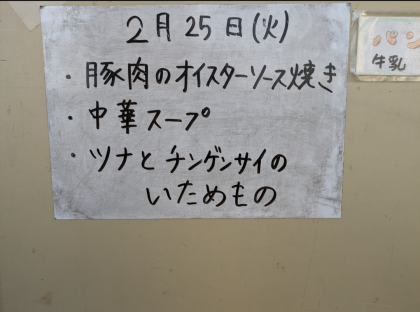 2月25日(火)
・豚肉のオイスターソース焼き
・中華スープ
・ツナとチンゲンサイの
いためもの
パン
牛乳